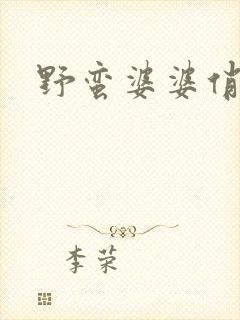 野蛮婆婆俏
李荣